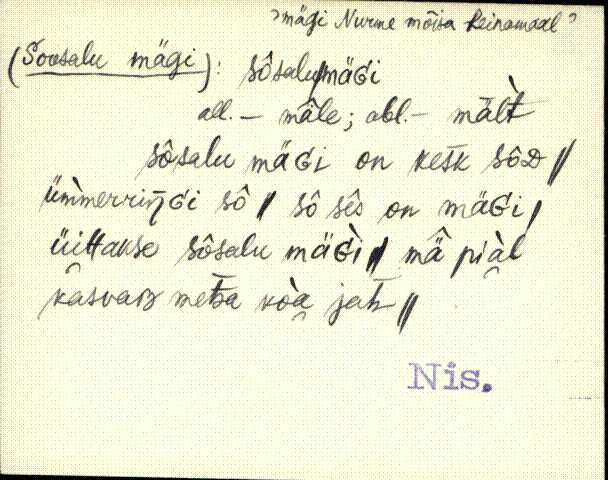 "mägi Nurme mõisa heinamaal"
(Soosalu mägi): sôsalu/mäGi
all. – mä̂le; abl. – mäl̀t
sôsalu mäGi on kesk sôD //
ümmerringi sô // sô sês on mäGi /
üittakse sôsalu mäGì // mä̂ piàl
kasvaB metsa koà jah //
Nis.